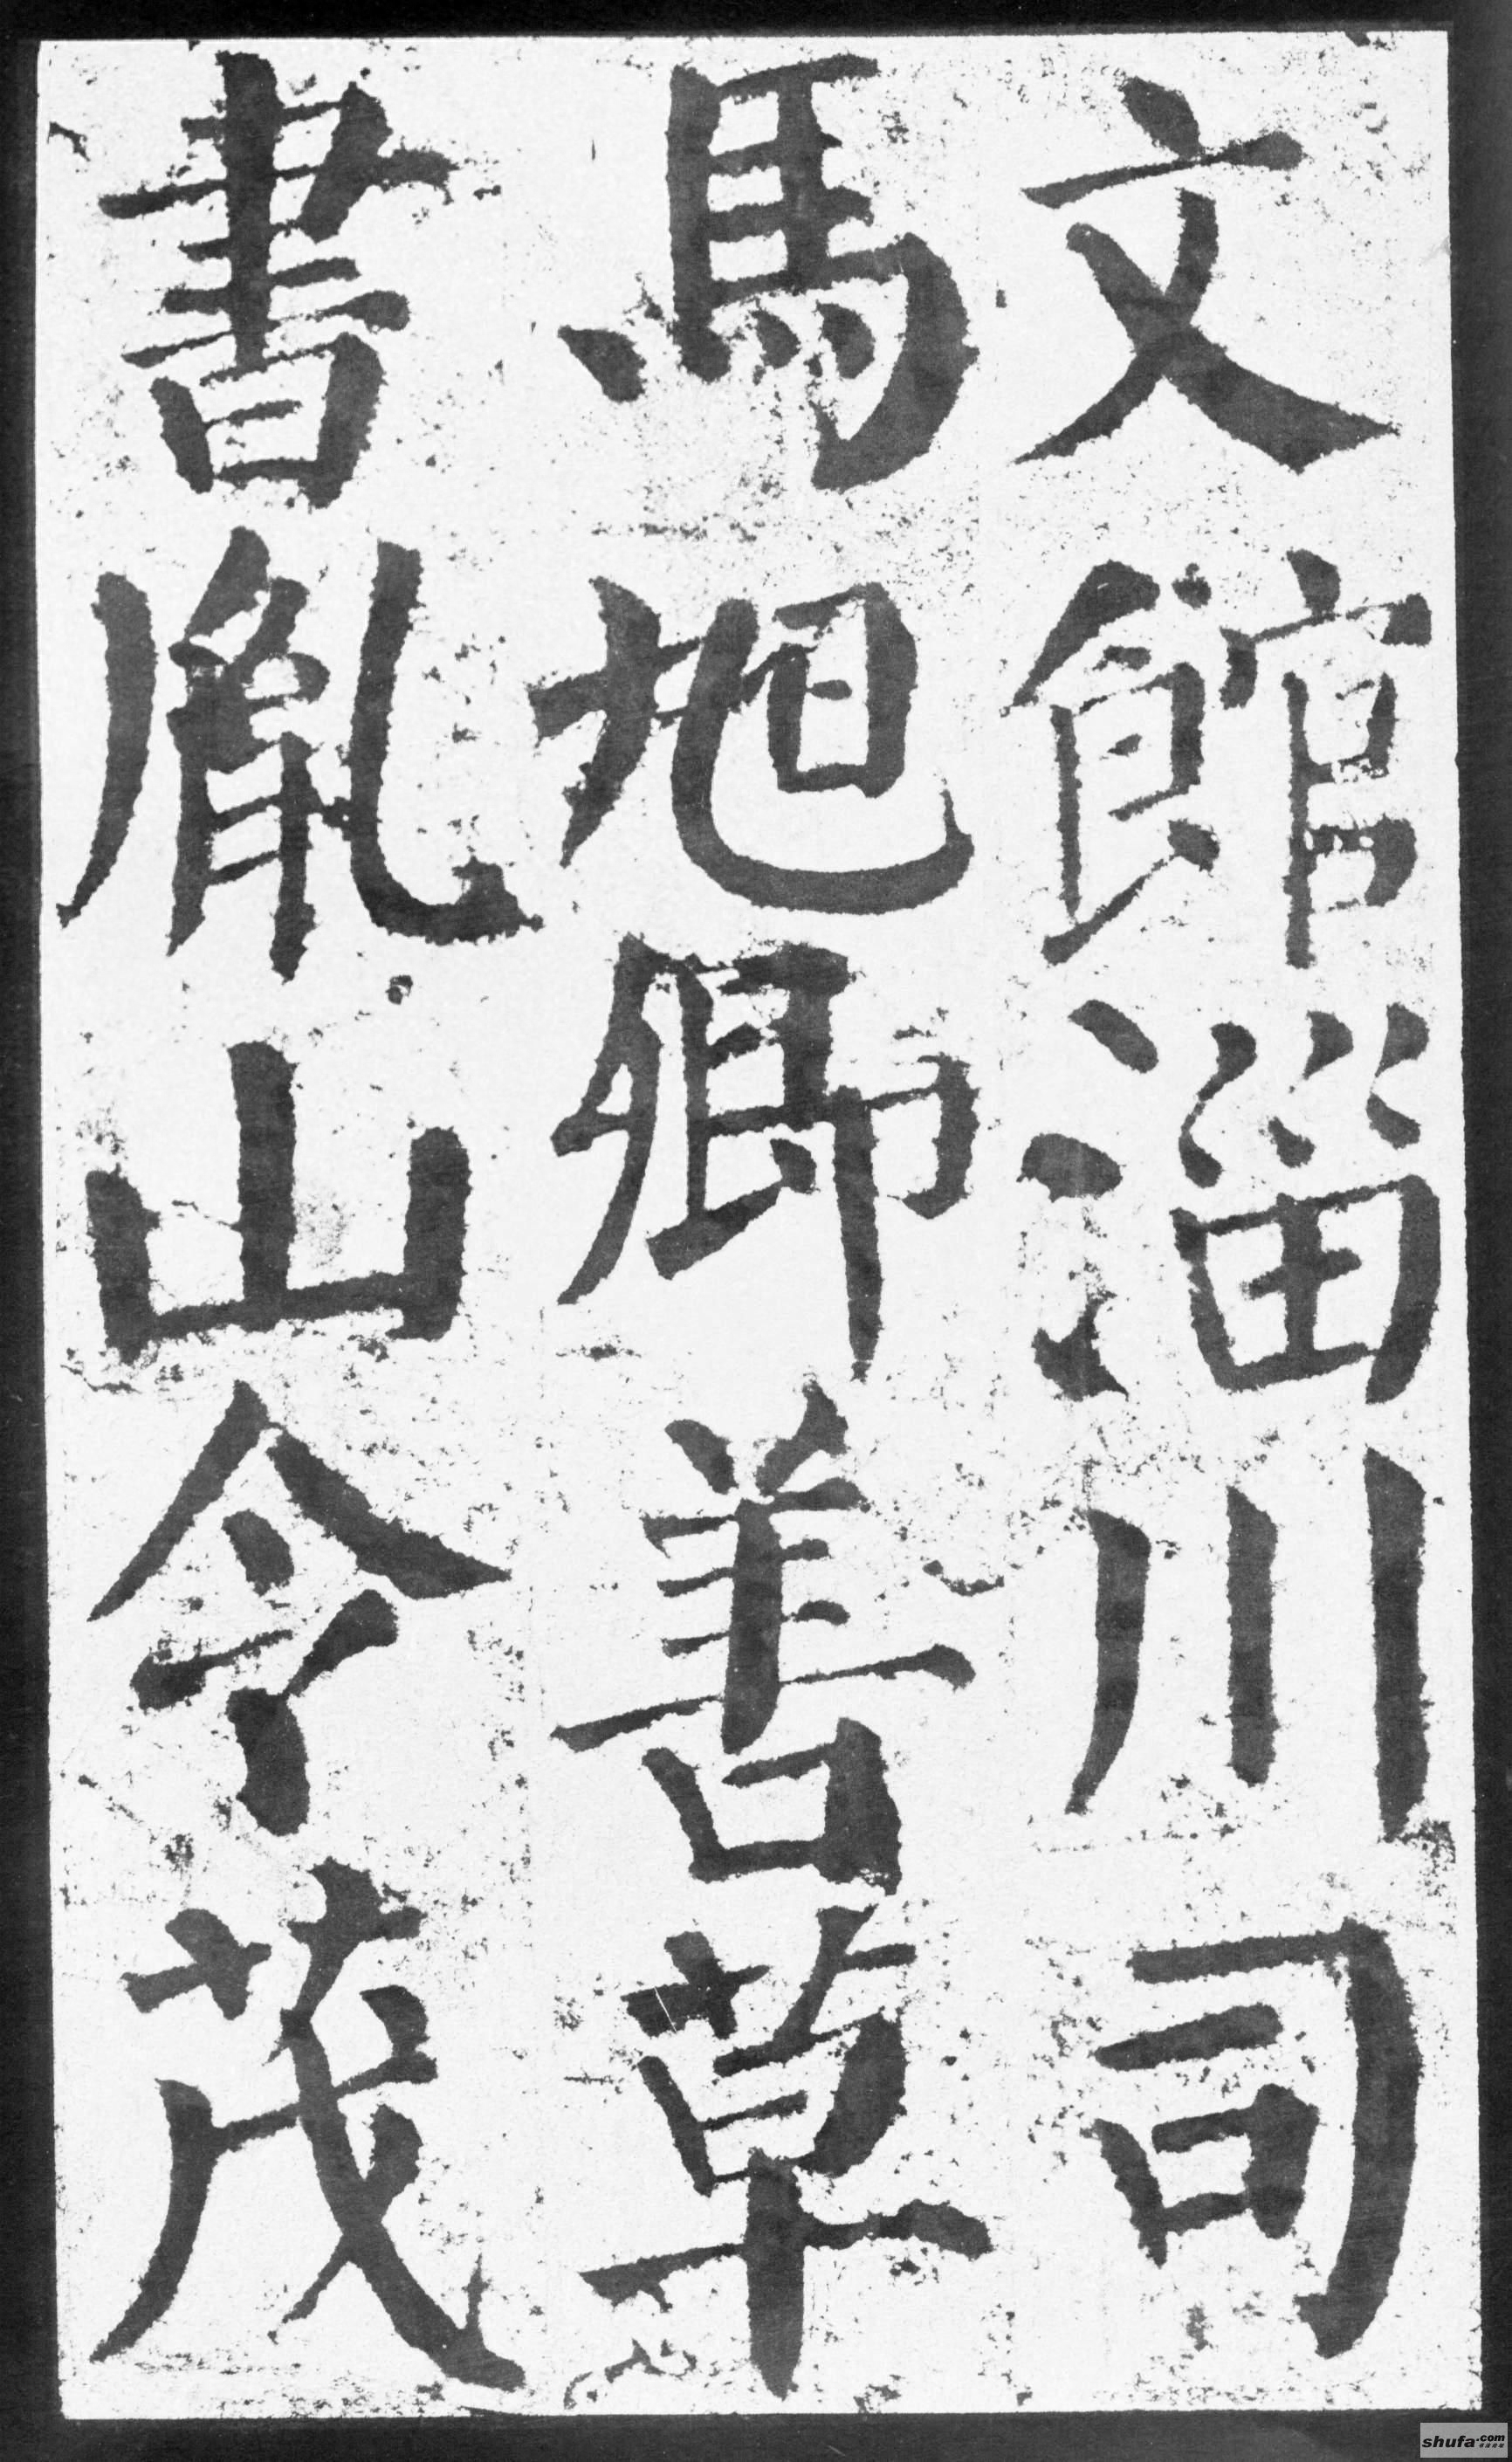 文館淄川司
馬旭卿善草
書胤山令茂
shufa.com